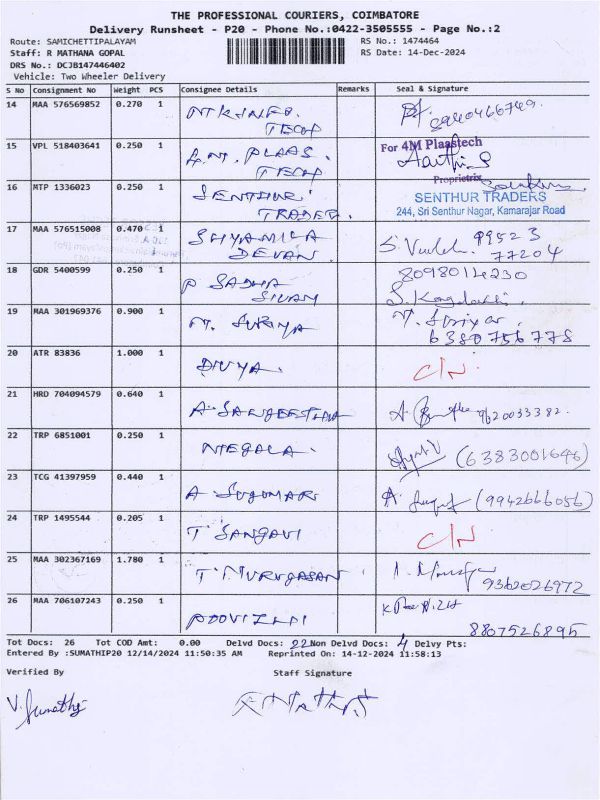 THE PROFESSIONAL COURIERS, COIMBATORE
Delivery Runsheet - P20 - Phone No.:0422-3505555 - Page No.:2
Route: SAMICHETTIPALAYAM
RS No.: 1474464
Staff: R MATHANA GOPAL
RS Date: 14-Dec-2024
DRS No.: DCJB147446402
Vehicle: Two Wheeler Delivery
S No Consignment No Weight PCS Consignee Details Remarks Seal & Signature
14 MAA 576569852 0.270 1 TECH
15 VPL 518403641 0.250 1 A.M. PLAAS. TECH For 4M Plaastech
Proprietrix
16 MTP 1336023 0.250 1 SENTHUR TRADER. SENTHUR TRADERS
244, Sri Senthur Nagar, Kamarajar Road
17 MAA 576515008 0.470 1 SHYAMILA DEVAN 99523 77204
18 GDR 5400599 0.250 1 P SADHA SIVAM 8098014230
19 MAA 301969376 0.900 1 M. SURIYA 6380756778
20 ATR 83836 1.000 1 DIVYA. C/N
21 HRD 704094579 0.640 1 A. SANGEETHA
22 TRP 6851001 0.250 1 (6383001646)
23 TCG 41397959 0.440 1 A SUGUMAR A. (9942666056)
24 TRP 1495544 0.205 1 T SANGAVI C/N
25 MAA 302367169 1.780 1 T. MURUGASAN 9362026972
26 MAA 706107243 0.250 1 8807526895
Tot Docs: 26 Tot COD Amt: 0.00 Delvd Docs: 22 Non Delvd Docs: 4 Delvy Pts:
Entered By :SUMATHIP20 12/14/2024 11:50:35 AM Reprinted On: 14-12-2024 11:58:13
Verified By Staff Signature
V. Sumathi